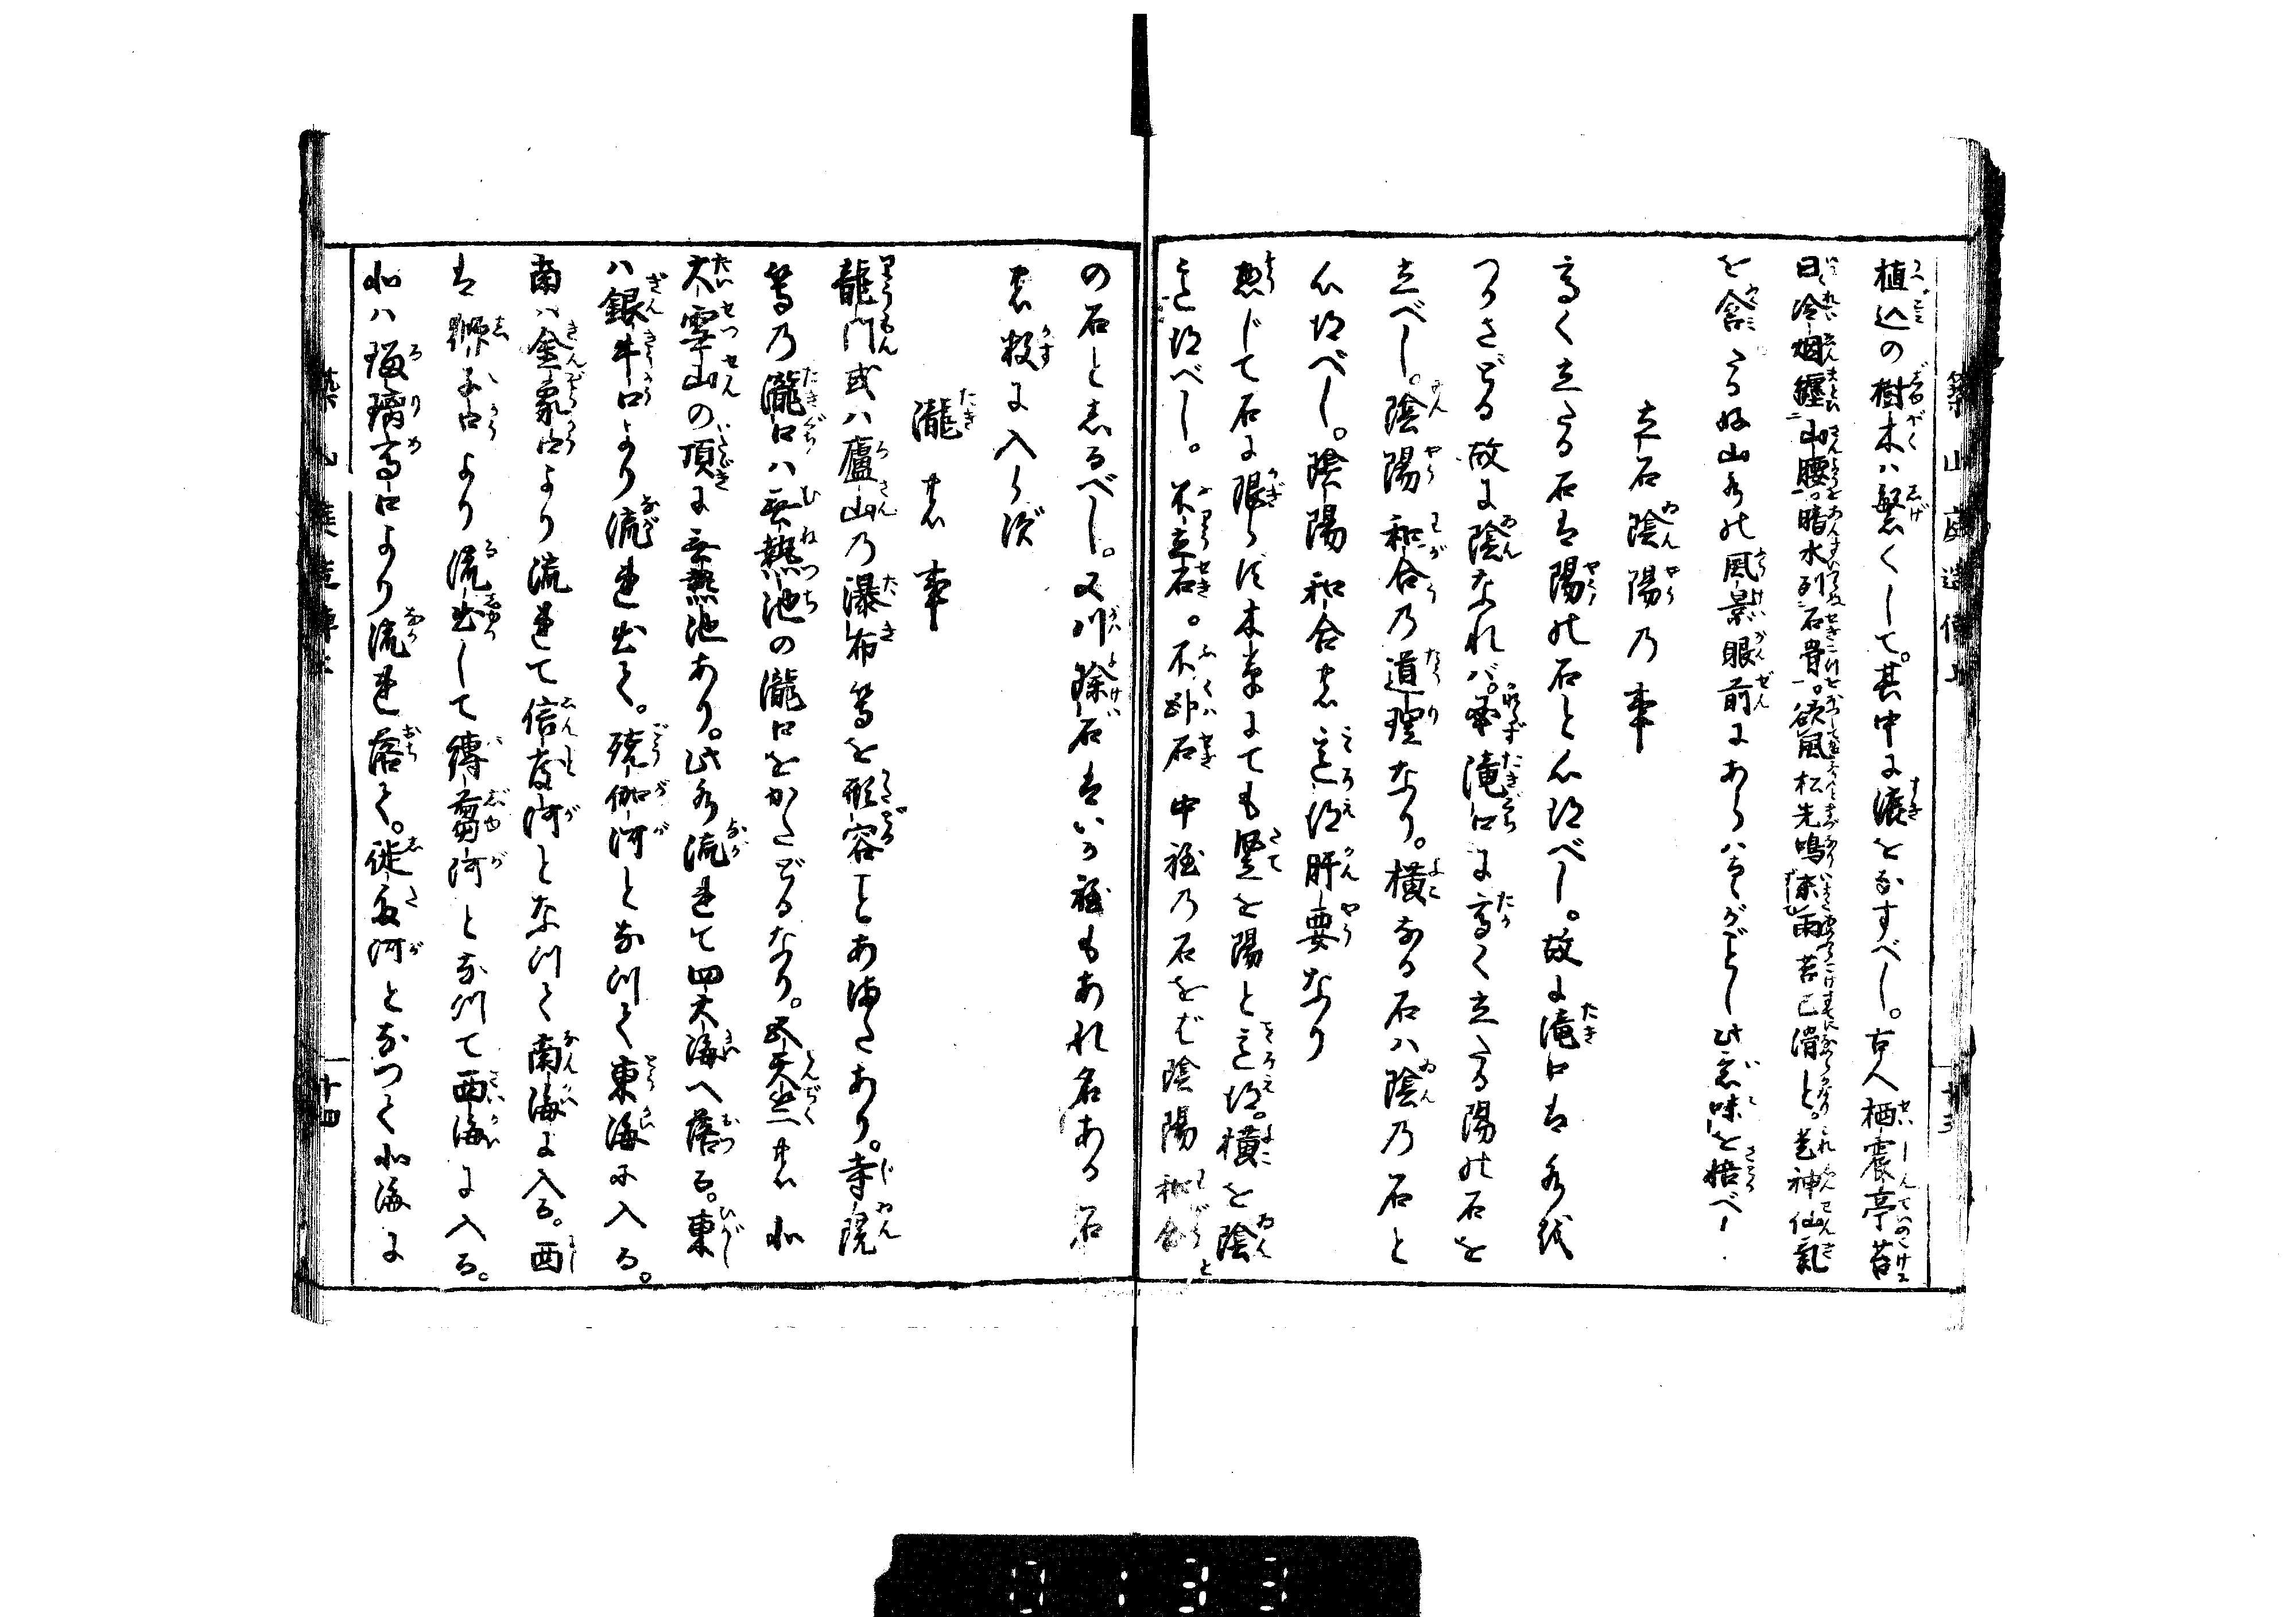 築山庭造傳上
十三
植込の樹木ハ繁くして。其中に濃をなすべし。古人栖霞亭苔
曰冷烟纏山腰。暗水列石骨。欲風松先鳴。未雨苔已滑と。是神仙氣
を含たる好山水の風景眼前にあらハるゝがごとし此意味を悟べし
立石陰陽乃事
高く立たる石は陽の石と心得べし。故に滝口は水を
つかさどる故に陰なれバ。必滝口に高く立たる陽の石を
立べし。陰陽和合乃道理なり。横なる石ハ陰乃石と
心得べし。陰陽和合の意得肝要なり
惣じて石に限らず木草にても竪を陽と意得。横を陰
意得べし。不立石。不臥石中位乃石をば陰陽和合と
の石としるべし。又川除石はいか程もあれ名ある石
の数に入らず
瀧の事
龍門或ハ廬山乃瀑布等を形容ことあまたあり。寺院
等乃瀧口ハ無熱池の瀧口をかたどるなり。天竺の北
大雪山の頂に無熱池あり。此水流れて四大海へ落る。東
ハ銀牛口より流れ出て。殑伽河となりて東海に入る。
南ハ金象口より流れて信度河となりて南海に入る。西
は獅子口より流出して縛芻河となりて西海に入る。
北ハ瑠璃馬口より流れ落て。徙多河となつて北海に
十四